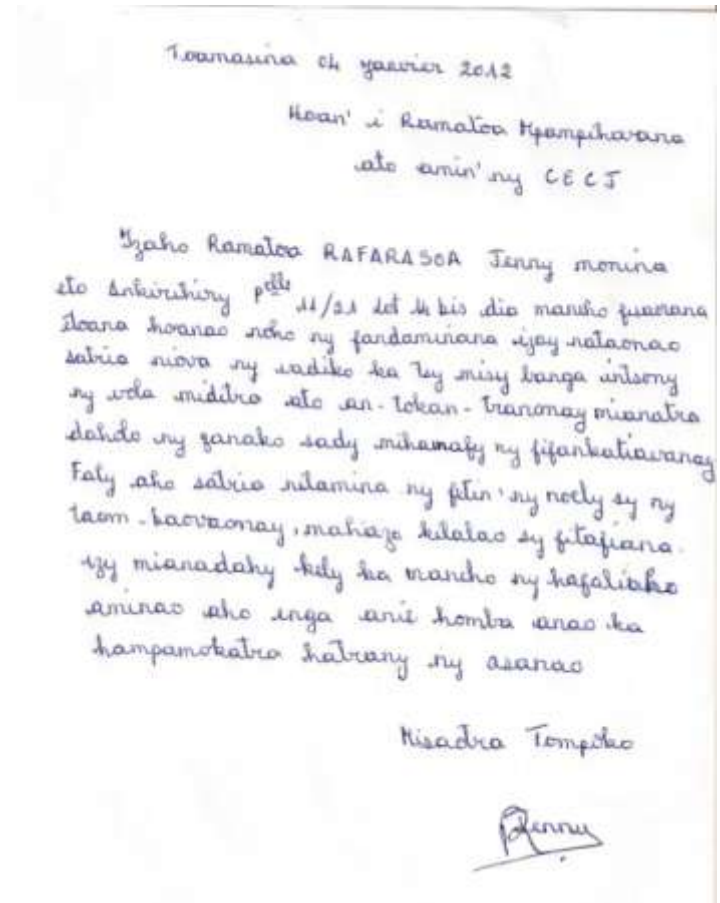 Toamasina 04 janvier 2012
Hoan' i Ramatoa Mpampihavana
ato amin' ny CECJ
Izaho Ramatoa RAFARASOA Jenny monina
eto Ankirihiry plle 11/21 lot 4 bis dia manho
iloana hoanao noho ny fandaminana izay nataonao
satria niova ny vadiko ka tsy misy banga intsony
ny vola miditra ato an-tokan-tranonay mianatra
daholo ny zanako sady mihamafy ny fifankatiavanay
Faly aho satria nilamina ny fetin' ny noely sy ny
taom-baovaonay, mahazo kilalao sy fitafiana
izy mianadahy kely ka manho ny hafaliako
aminao aho enga anie homba anao ka
hampamokatra hatrany ny asanao
Misaotra Tompoko
Jenny